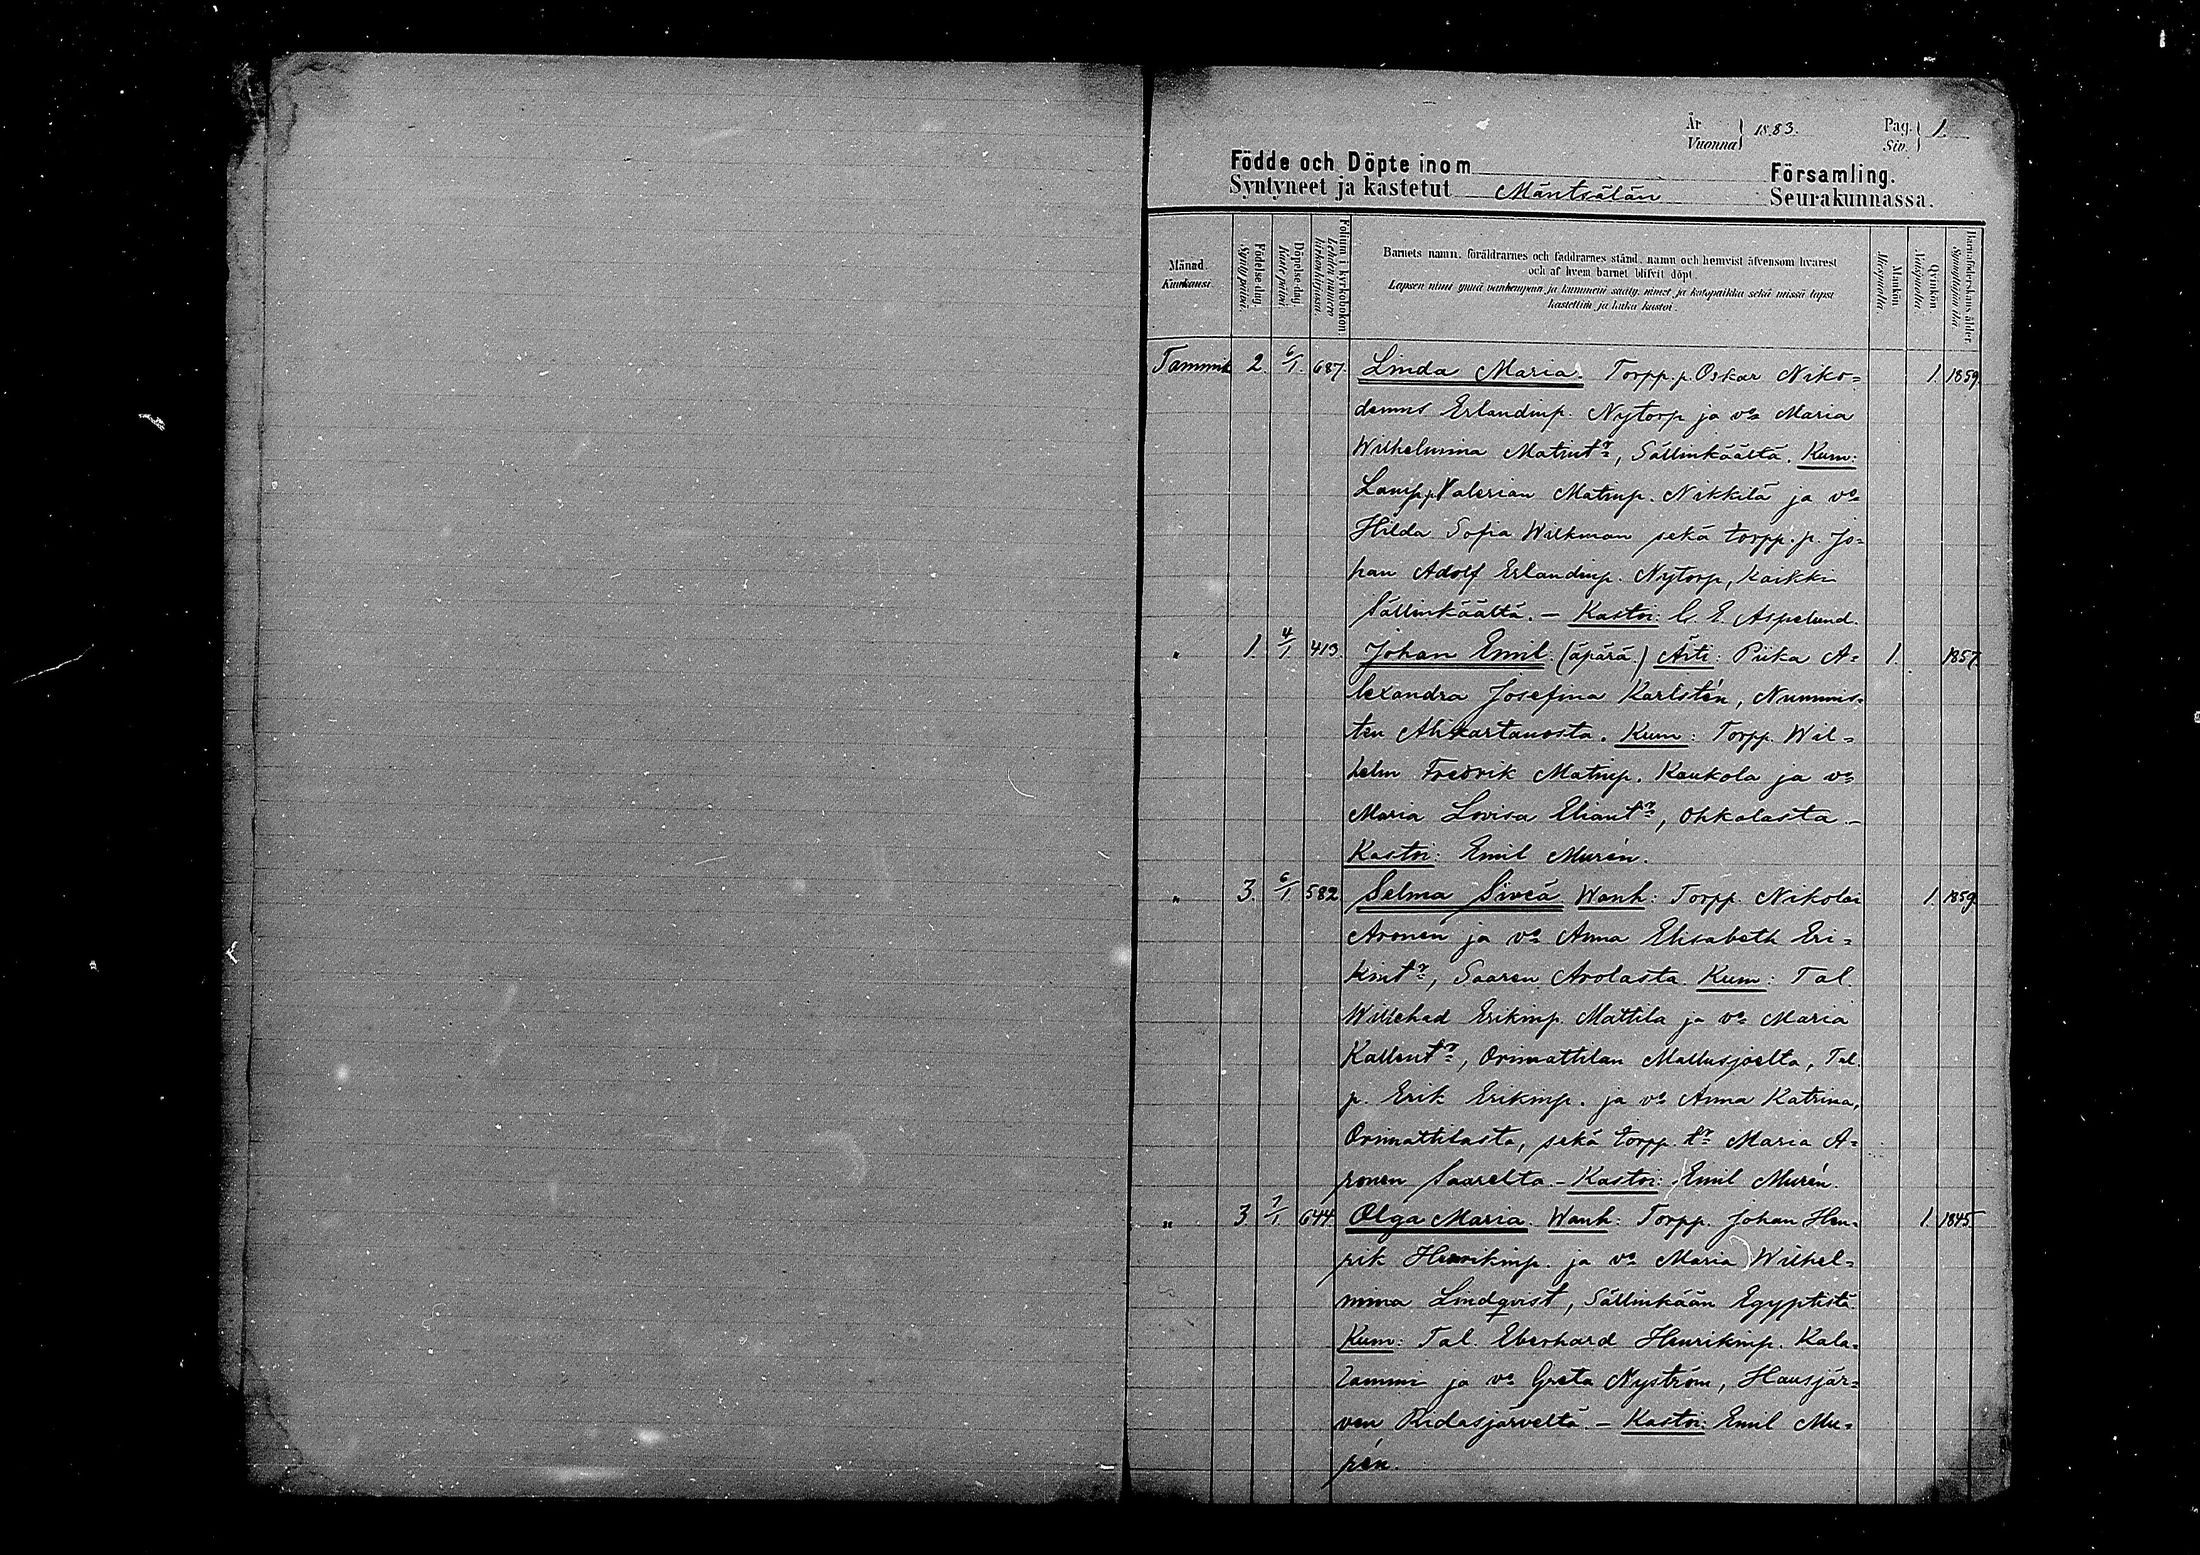 År
Vuonna } 1883. Pag.
Siv. } 1.
Födde och Döpte inom Församling.
Syntyneet ja kastetut Mäntsälän Seurakunnassa.
Månad.
Kuukausi.
Födelsedag.
Syntypäivä.
Döpelsedag.
Kastepäivä.
Folium i kyrkoboken.
Lehden numero
kirkonkirjassa.
Barnets namn, föräldrarnes och faddrarnes stånd, namn och hemvist äfvensom hvarest
och af hvem barnet blifvit döpt.
Lapsen nimi ynnä vanhempain ja kummein sääty, nimet ja kotopaikka sekä missä lapsi
kastettiin ja kuka kastoi.
Mankön.
Miespuolia.
Qvinkön.
Naispuolia.
Barnaföderskans ålder.
Synnyttäjän ikä.
Tammik. 2. 6/1. 687. Linda Maria. Torpp. p. Oskar Niko= 1. 1859.
demus Erlandinp. Nytorp ja vo Maria
Wilhelmina Matint:r, Sällinkäältä. Kum:
Lampp. Valerian Matinp. Nikkilä ja vo
Hilda Sofia Wilkman sekä torpp. p. Jo=
han Adolf Erlandinp. Nytorp, kaikki
Sällinkäältä. – Kastoi: C. E. Aspelund.
" 1. 4/1 413. Johan Emil. (äpärä.) Äiti: Piika A= 1. 1857.
lexandra Josefina Karlstén, Nummis=
ten Alikartanosta. Kum: Torpp. Wil=
helm Fredrik Matinp. Kaukola ja vo
Maria Lovisa Eliant:r, Ohkolasta. –
Kastoi: Emil Murén.
" 3. 6/1 582. Selma Siveä Wanh: Torpp. Nikolai 1. 1859.
Aronen ja vo Anna Elisabeth Eri=
kint:r, Saaren Arolasta. Kum: Tal.
Willehad Erikinp. Mattila ja vo Maria
Kallent:r, Orimattilan Mallusjoelta, Tal.
p. Erik Erikinp. ja vo Anna Katrina,
Orimattilasta, sekä torpp. t:r Maria A=
ronen Saarelta. – Kastoi: Emil Murén.
" 3 7/1 644. Olga Maria. Wanh: Torpp. Johan Hen= 1. 1845
rik Henrikinp. ja vo Maria Wilhel=
mina Lindqvist, Sällinkään Egyptistä.
Kum: Tal. Eberhard Henrikinp. Kala=
lammi ja vo Greta Nyström, Hausjär=
ven Ridasjärveltä. – Kastoi: Emil Mu=
rén.